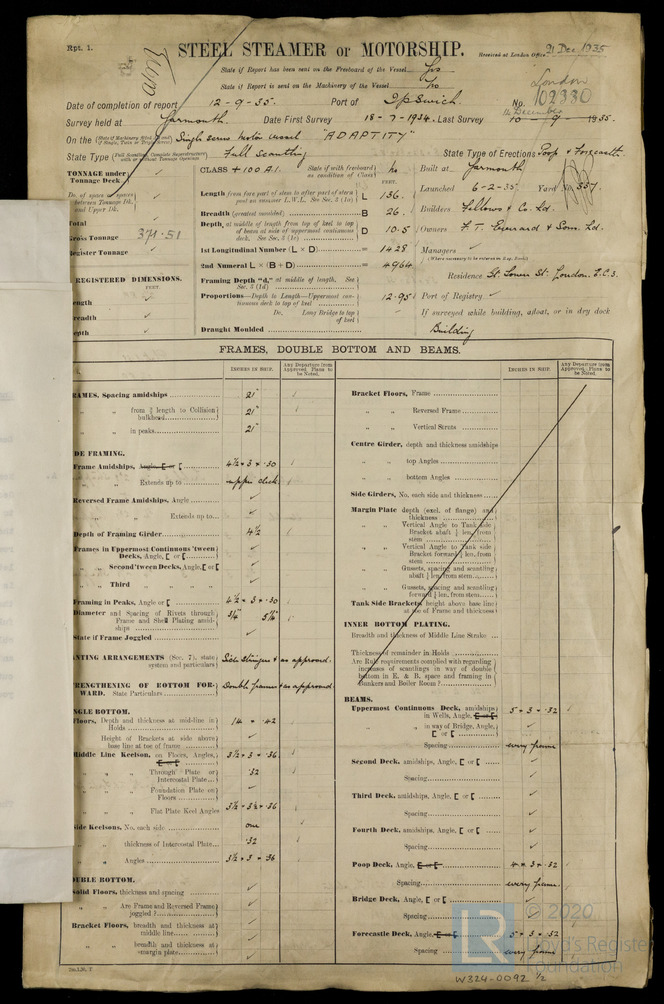 Rpt. 1.
STEEL STEAMER or MOTORSHIP.
Received at London Office 21 Dec 1935
State if Report has been sent on the Freeboard of the Vessel Yes
State if Report is sent on the Machinery of the Vessel No
London
Date of completion of report 12-9-35. Port of Ipswich. No. 102330
Survey held at Yarmouth. Date First Survey 18-7-1934. Last Survey 10-9-1935.
On the Single screw motor vessel "ADAPTITY"
State Type Full Scantling State Type of Erections Poop & Forecastle
TONNAGE under Tonnage Deck
CLASS +100 A.1. State if with freeboard as condition of Class No
Built at Yarmouth
FEET.
Length from fore part of stem to after part of stern post on summer L.W.L. See Sec. 3 (1a) L 136.
Launched 6-2-35. Yard No. 557.
Breadth (greatest moulded) B 26.
Builders Fellows & Co. Ld.
Depth, at middle of length from top of keel to top of beam at side of uppermost continuous deck. See Sec. 3 (1c) D 10.5
Owners F. T. Everard & Sons. Ld.
Gross Tonnage 371.51
1st Longitudinal Number (L × D) = 1428
Managers
Register Tonnage
2nd Numeral L × (B + D) = 4964
(Where necessary to be entered in Reg. Book)
REGISTERED DIMENSIONS.
FEET.
Framing Depth "d," at middle of length. See Sec. 3 (1d)
Residence London. E.C.3.
Proportions—Depth to Length—Uppermost continuous deck to top of keel 12.95
Port of Registry
Do. Long Bridge to top of keel
If surveyed while building, afloat, or in dry dock
Draught Moulded
Building
FRAMES, DOUBLE BOTTOM AND BEAMS.
INCHES IN SHIP.
Any Departure from Approved Plans to be Noted.
INCHES IN SHIP.
Any Departure from Approved Plans to be Noted.
RAMES, Spacing amidships 21"
" " from ⅗ length to Collision bulkhead 21"
" " in peaks 21"
DE FRAMING.
Frame Amidships, Angle, [ or [ 4½ × 3 × .30
" " Extends up to upper deck
Reversed Frame Amidships, Angle
" " Extends up to
Depth of Framing Girder 4½
Frames in Uppermost Continuous 'tween Decks, Angle, [ or [
" " Second 'tween Decks, Angle, [ or [
" " Third " " " "
Framing in Peaks, Angle or [ 4½ × 3 × .30
Diameter and Spacing of Rivets through Frame and Shell Plating amidships ¾" 5¼"
State if Frame Joggled
NTING ARRANGEMENTS (Sec. 7), state system and particulars Side Stringers as approved.
RENGTHENING OF BOTTOM FORWARD. State Particulars Double frames as approved
NGLE BOTTOM.
Floors, Depth and thickness at mid-line in Holds 14 × .42
Height of Brackets at side above base line at toe of frame
Middle Line Keelson, on Floors, Angles, [ or [ 3½ × 3 × .36
" " Through Plate or Intercostal Plate .32
" " Foundation Plate on Floors
" " Flat Plate Keel Angles 3½ × 3½ × .36
Side Keelsons, No. each side one
" " thickness of Intercostal Plate .32
" " Angles 3½ × 3 × .36
OUBLE BOTTOM.
Solid Floors, thickness and spacing
" " Are Frame and Reversed Frame joggled?
Bracket Floors, breadth and thickness at middle line
" " breadth and thickness at margin plate
Bracket Floors, Frame
" " Reversed Frame
" " Vertical Struts
Centre Girder, depth and thickness amidships
" " top Angles
" " bottom Angles
Side Girders, No. each side and thickness
Margin Plate depth (excl. of flange) and thickness
" " Vertical Angle to Tank side Bracket abaft ¼ len. from stem
" " Vertical Angle to Tank side Bracket forward ¼ len. from stem
" " Gussets, spacing and scantling abaft ¼ len. from stem
" " Gussets, spacing and scantling forward ¼ len. from stem
Tank Side Brackets, height above base line at toe of Frame and thickness
INNER BOTTOM PLATING.
Breadth and thickness of Middle Line Strake
Thickness of remainder in Holds
Are Rule requirements complied with regarding increases of scantlings in way of double bottom in E. & B. space and framing in Bunkers and Boiler Room?
BEAMS.
Uppermost Continuous Deck, amidships in Wells, Angle, [ or [ 5 × 3 × .32
" " in way of Bridge, Angle, [ or [
Spacing every frame
Second Deck, amidships, Angle, [ or [
Spacing
Third Deck, amidships, Angle, [ or [
Spacing
Fourth Deck, amidships, Angle, [ or [
Spacing
Poop Deck, Angle, [ or [ 4 × 3 × .32
Spacing every frame.
Bridge Deck, Angle, [ or [
Spacing
Forecastle Deck, Angle, [ or [ 5 × 3 × .32
Spacing every frame
LR
© 2020
Lloyd's Register
Foundation
W324-0092 ½